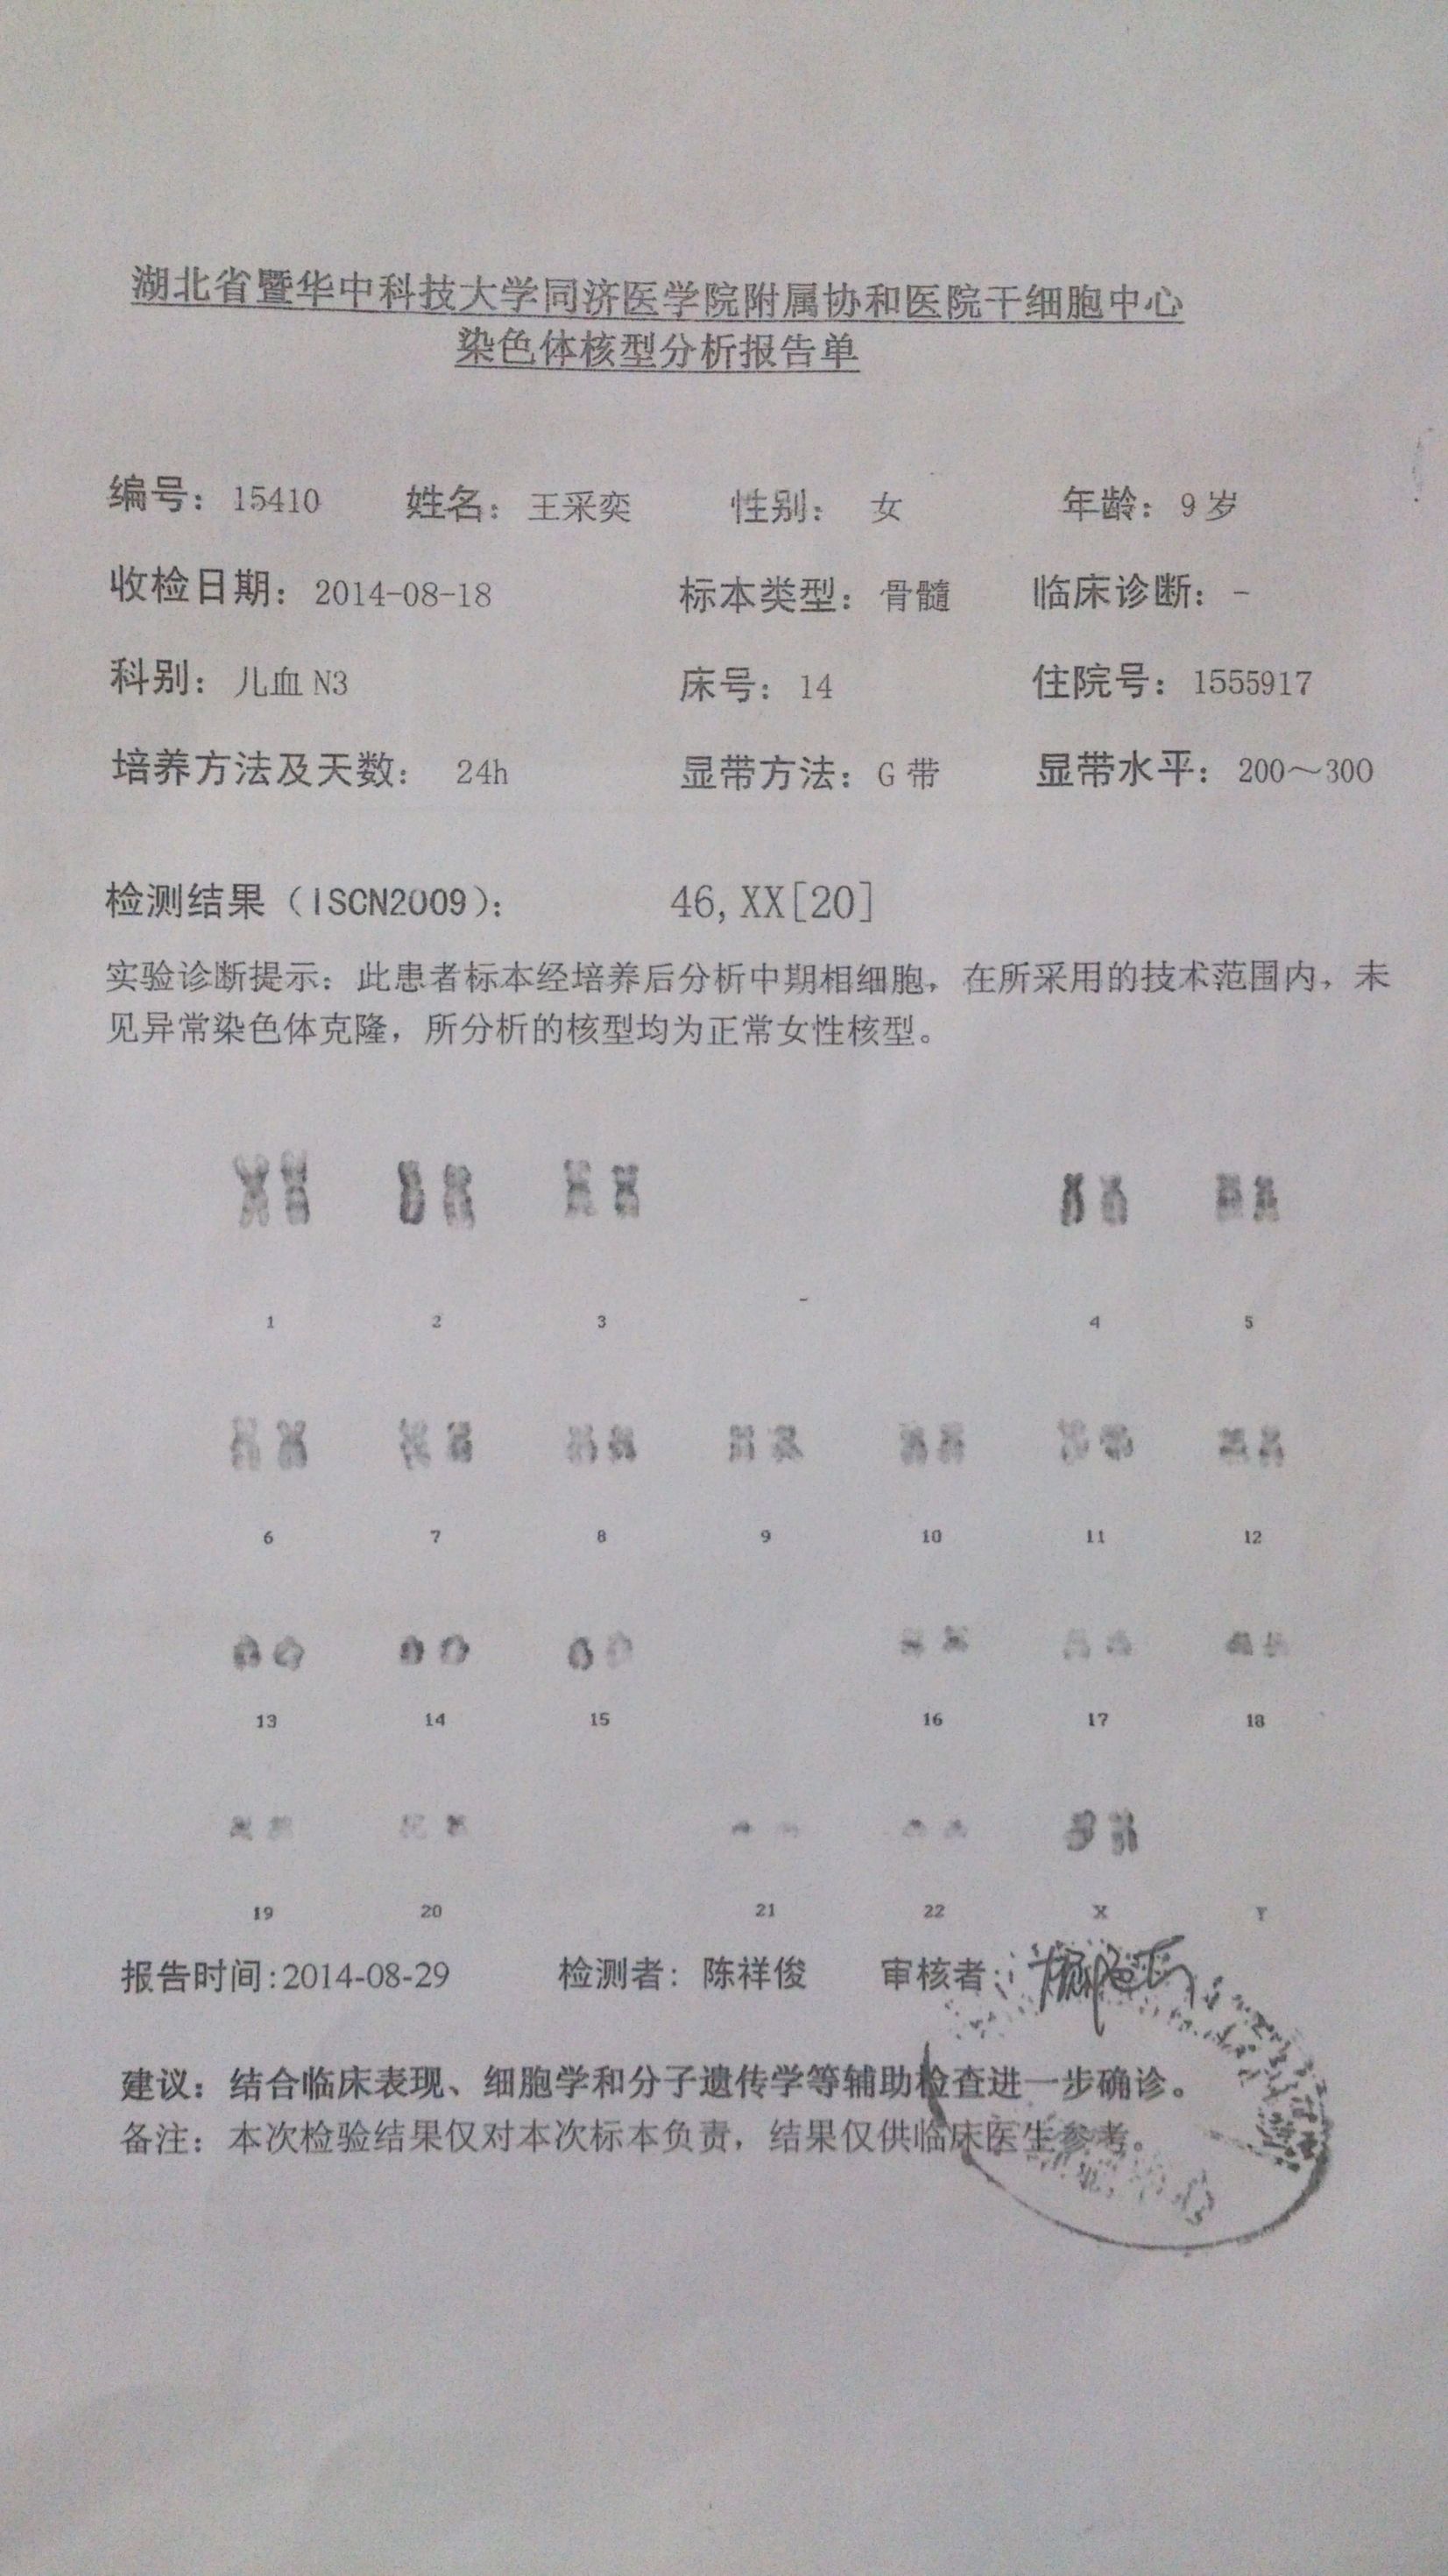 湖北省暨华中科技大学同济医学院附属协和医院干细胞中心
染色体核型分析报告单
编号：15410 姓名：王采奕 性别： 女 年龄：9岁
收检日期：2014-08-18 标本类型：骨髓 临床诊断：-
科别：儿血N3 床号：14 住院号：1555917
培养方法及天数： 24h 显带方法：G带 显带水平：200～300
检测结果（ISCN2009）： 46,XX[20]
实验诊断提示：此患者标本经培养后分析中期相细胞，在所采用的技术范围内，未
见异常染色体克隆，所分析的核型均为正常女性核型。
1 2 3 4 5
6 7 8 9 10 11 12
13 14 15 16 17 18
19 20 21 22 X Y
报告时间:2014-08-29 检测者：陈祥俊 审核者：
建议：结合临床表现、细胞学和分子遗传学等辅助检查进一步确诊。
备注：本次检验结果仅对本次标本负责，结果仅供临床医生参考。